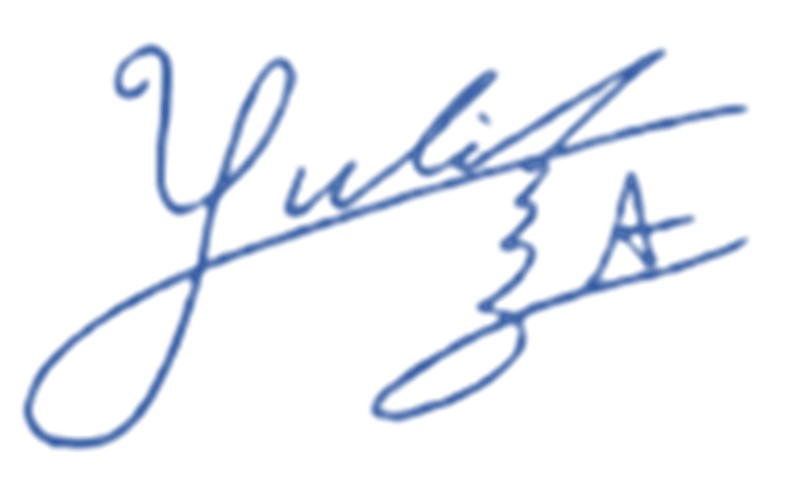 Yuli A